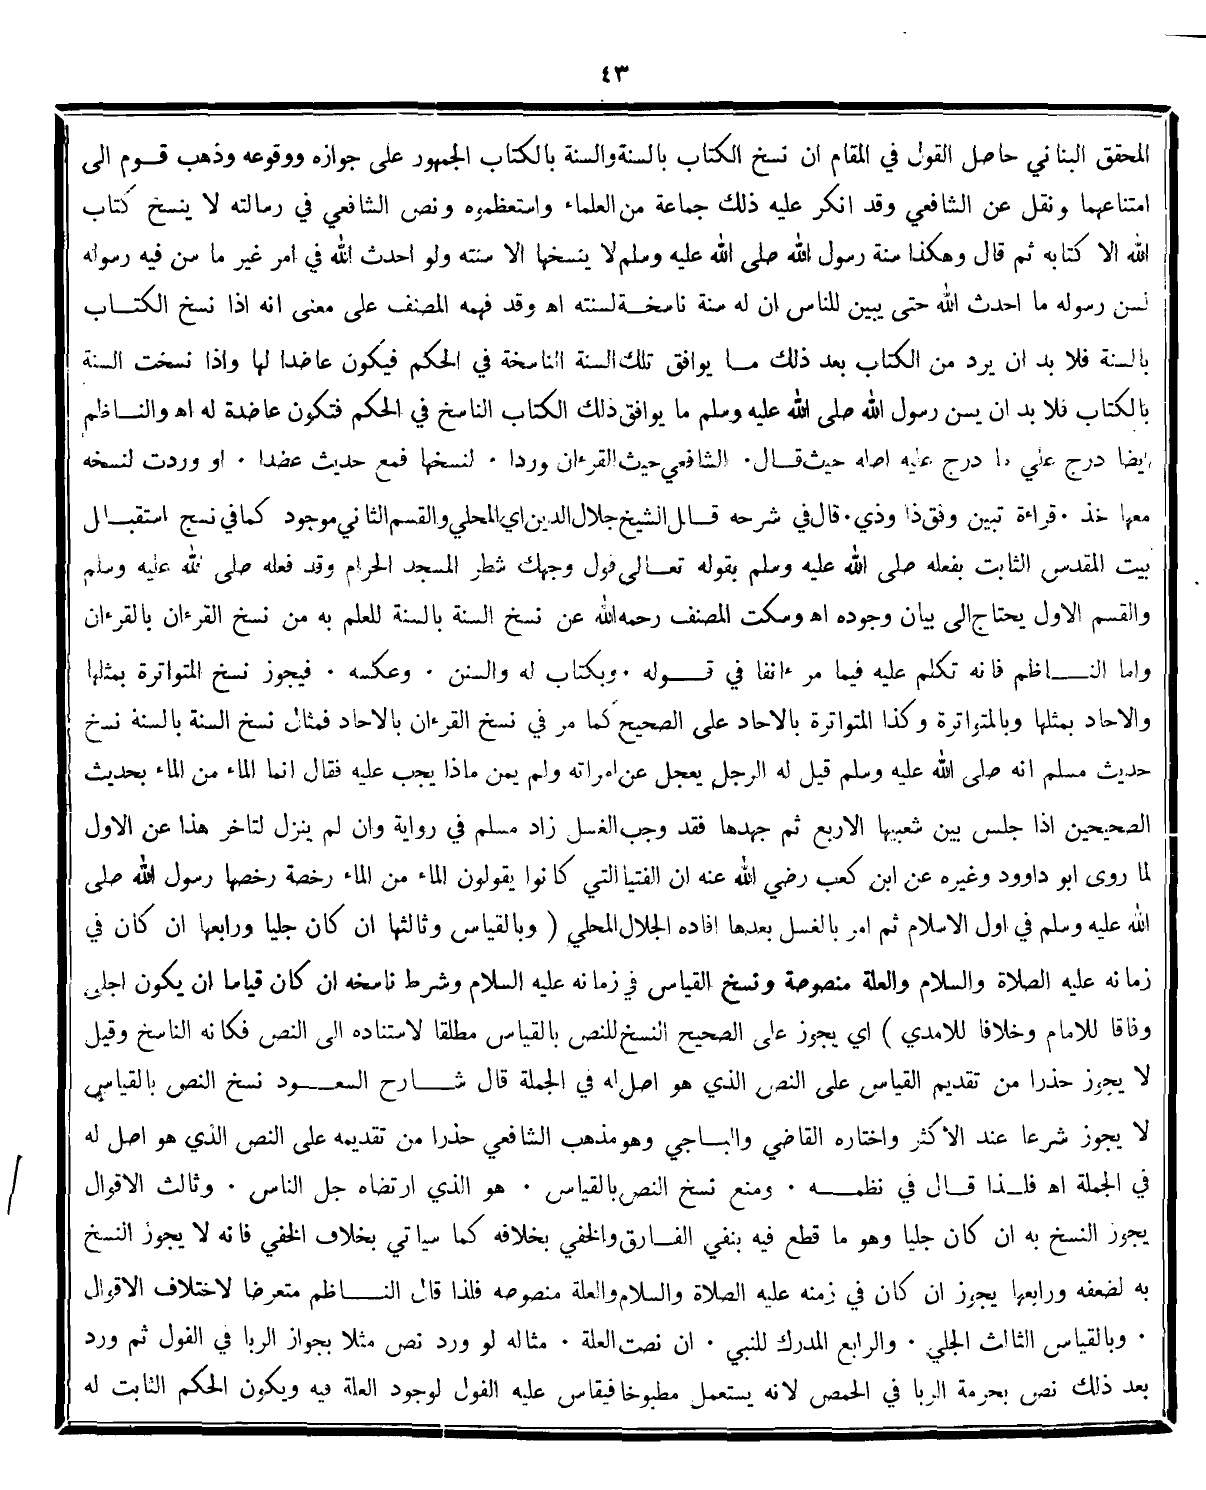 ٤٣
المحقق البناني حاصل القول في المقام ان نسخ الكتاب بالسنة والسنة بالكتاب الجمهور على جوازه ووقوعه وذهب قوم الى
امتناعهما ونقل عن الشافعي وقد انكر عليه ذلك جماعة من العلماء واستعظموه ونص الشافعي في رسالته لا ينسخ كتاب
الله الا كتابه ثم قال وهكذا سنة رسول الله صلى الله عليه وسلم لا ينسخها الا سنته ولو احدث الله في امر غير ما سن فيه رسوله
لسن رسوله ما احدث الله حتى يبين للناس ان له سنة ناسخة لسنته اه وقد فهمه المصنف على معنى انه اذا نسخ الكتاب
بالسنة فلا بد ان يرد من الكتاب بعد ذلك ما يوافق تلك السنة الناسخة في الحكم فيكون عاضدا لها واذا نسخت السنة
بالكتاب فلا بد ان يسن رسول الله صلى الله عليه وسلم ما يوافق ذلك الكتاب الناسخ في الحكم فتكون عاضدة له اه والناظم
ايضا درج على ما درج عليه اصله حيث قال · الشافعي حيث القرءان وردا · لنسخها فمع حديث عضدا · او وردت لنسخه
معها خذ · قراءة تبين وفق ذا وذي · قال في شرحه قال الشيخ جلال الدين اي المحلي والقسم الثاني موجود كما في نسخ استقبال
بيت المقدس الثابت بفعله صلى الله عليه وسلم بقوله تعالى فول وجهك شطر المسجد الحرام وقد فعله صلى الله عليه وسلم
والقسم الاول يحتاج الى بيان وجوده اه وسكت المصنف رحمه الله عن نسخ السنة بالسنة للعلم به من نسخ القرءان بالقرءان
واما الناظم فانه تكلم عليه فيما مر ءانفا في قوله · وبكتاب له والسنن · وعكسه · فيجوز نسخ المتواترة بمثلها
والاحاد بمثلها وبالمتواترة وكذا المتواترة بالاحاد على الصحيح كما مر في نسخ القرءان بالاحاد فمثال نسخ السنة بالسنة نسخ
حديث مسلم انه صلى الله عليه وسلم قيل له الرجل يعجل عن امراته ولم يمن ماذا يجب عليه فقال انما الماء من الماء بحديث
الصحيحين اذا جلس بين شعبها الاربع ثم جهدها فقد وجب الغسل زاد مسلم في رواية وان لم ينزل لتاخر هذا عن الاول
لما روى ابو داوود وغيره عن ابن كعب رضي الله عنه ان الفتيا التي كانوا يقولون الماء من الماء رخصة رخصها رسول الله صلى
الله عليه وسلم في اول الاسلام ثم امر بالغسل بعدها افاده الجلال المحلي ( وبالقياس وثالثها ان كان جليا ورابعها ان كان في
زمانه عليه الصلاة والسلام والعلة منصوصة ونسخ القياس في زمانه عليه السلام وشرط ناسخه ان كان قياسا ان يكون اجلى
وفاقا للامام وخلافا للامدي ) اي يجوز على الصحيح النسخ للنص بالقياس مطلقا لاستناده الى النص فكانه الناسخ وقيل
لا يجوز حذرا من تقديم القياس على النص الذي هو اصل له في الجملة قال شارح السعود نسخ النص بالقياس
لا يجوز شرعا عند الاكثر واختاره القاضي والباجي وهو مذهب الشافعي حذرا من تقديمه على النص الذي هو اصل له
في الجملة اه فلذا قال في نظمه · ومنع نسخ النص بالقياس · هو الذي ارتضاه جل الناس · وثالث الاقوال
يجوز النسخ به ان كان جليا وهو ما قطع فيه بنفي الفارق والخفي بخلافه كما سياتي بخلاف الخفي فانه لا يجوز النسخ
به لضعفه ورابعها يجوز ان كان في زمنه عليه الصلاة والسلام والعلة منصوصه فلذا قال الناظم متعرضا لاختلاف الاقوال
· وبالقياس الثالث الجلي · والرابع المدرك للنبي · ان نصت العلة · مثاله لو ورد نص مثلا بجواز الربا في الفول ثم ورد
بعد ذلك نص بحرمة الربا في الحمص لانه يستعمل مطبوخا فيقاس عليه الفول لوجود العلة فيه ويكون الحكم الثابت له